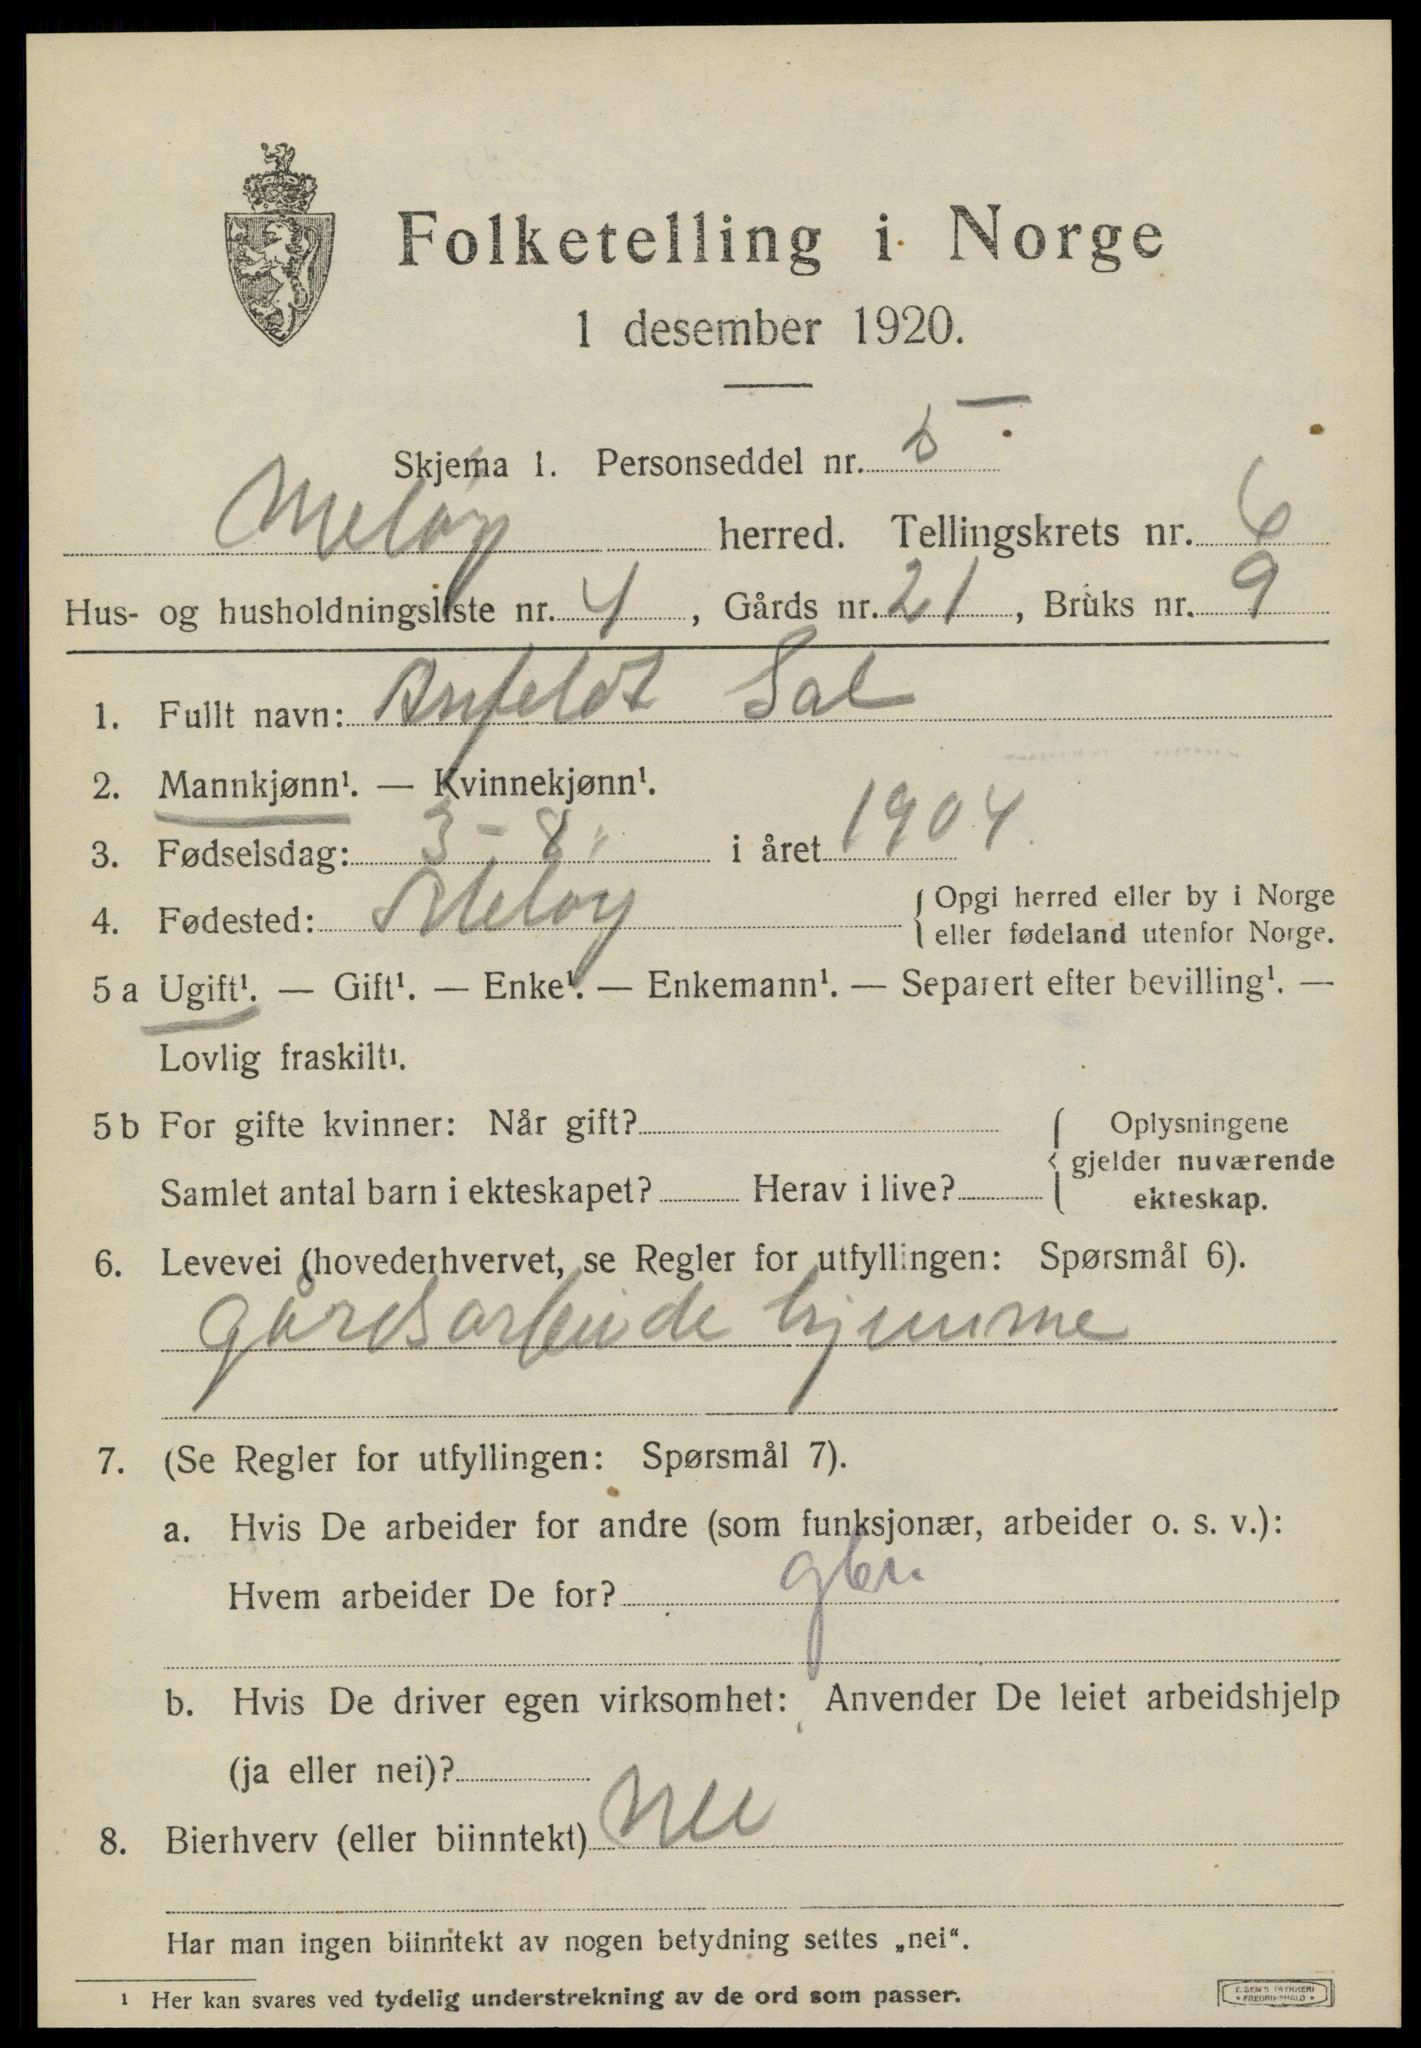 Folketelling i Norge
1 desember 1920.
Skjema 1. Personseddel nr. 5
Meløy herred. Tellingskrets nr. 6
Hus- og husholdningsliste nr. 4, Gårds nr. 21, Bruks nr. 9
1. Fullt navn: Anfeldt Sal
2. Mannkjønn¹. — Kvinnekjønn¹.
3. Fødselsdag: 3-8 i året 1904
4. Fødested: Meløy {Opgi herred eller by i Norge
eller fødeland utenfor Norge.
5 a Ugift¹. — Gift¹. — Enke¹. — Enkemann¹. — Separert efter bevilling¹. —
Lovlig fraskilt¹.
5 b For gifte kvinner: Når gift? { Oplysningene
gjelder nuværende
Samlet antal barn i ekteskapet? Herav i live? ekteskap.
6. Levevei (hovederhvervet, se Regler for utfyllingen: Spørsmål 6).
gårdsarbeide hjemme
7. (Se Regler for utfyllingen: Spørsmål 7).
a. Hvis De arbeider for andre (som funksjonær, arbeider o. s. v.):
Hvem arbeider De for? gbr.
b. Hvis De driver egen virksomhet: Anvender De leiet arbeidshjelp
(ja eller nei)?
8. Bierhverv (eller biinntekt) Nei
Har man ingen biinntekt av nogen betydning settes „nei“.
¹ Her kan svares ved tydelig understrekning av de ord som passer.
E. SEM'S TRYKKERI
FREDRIKSHALD